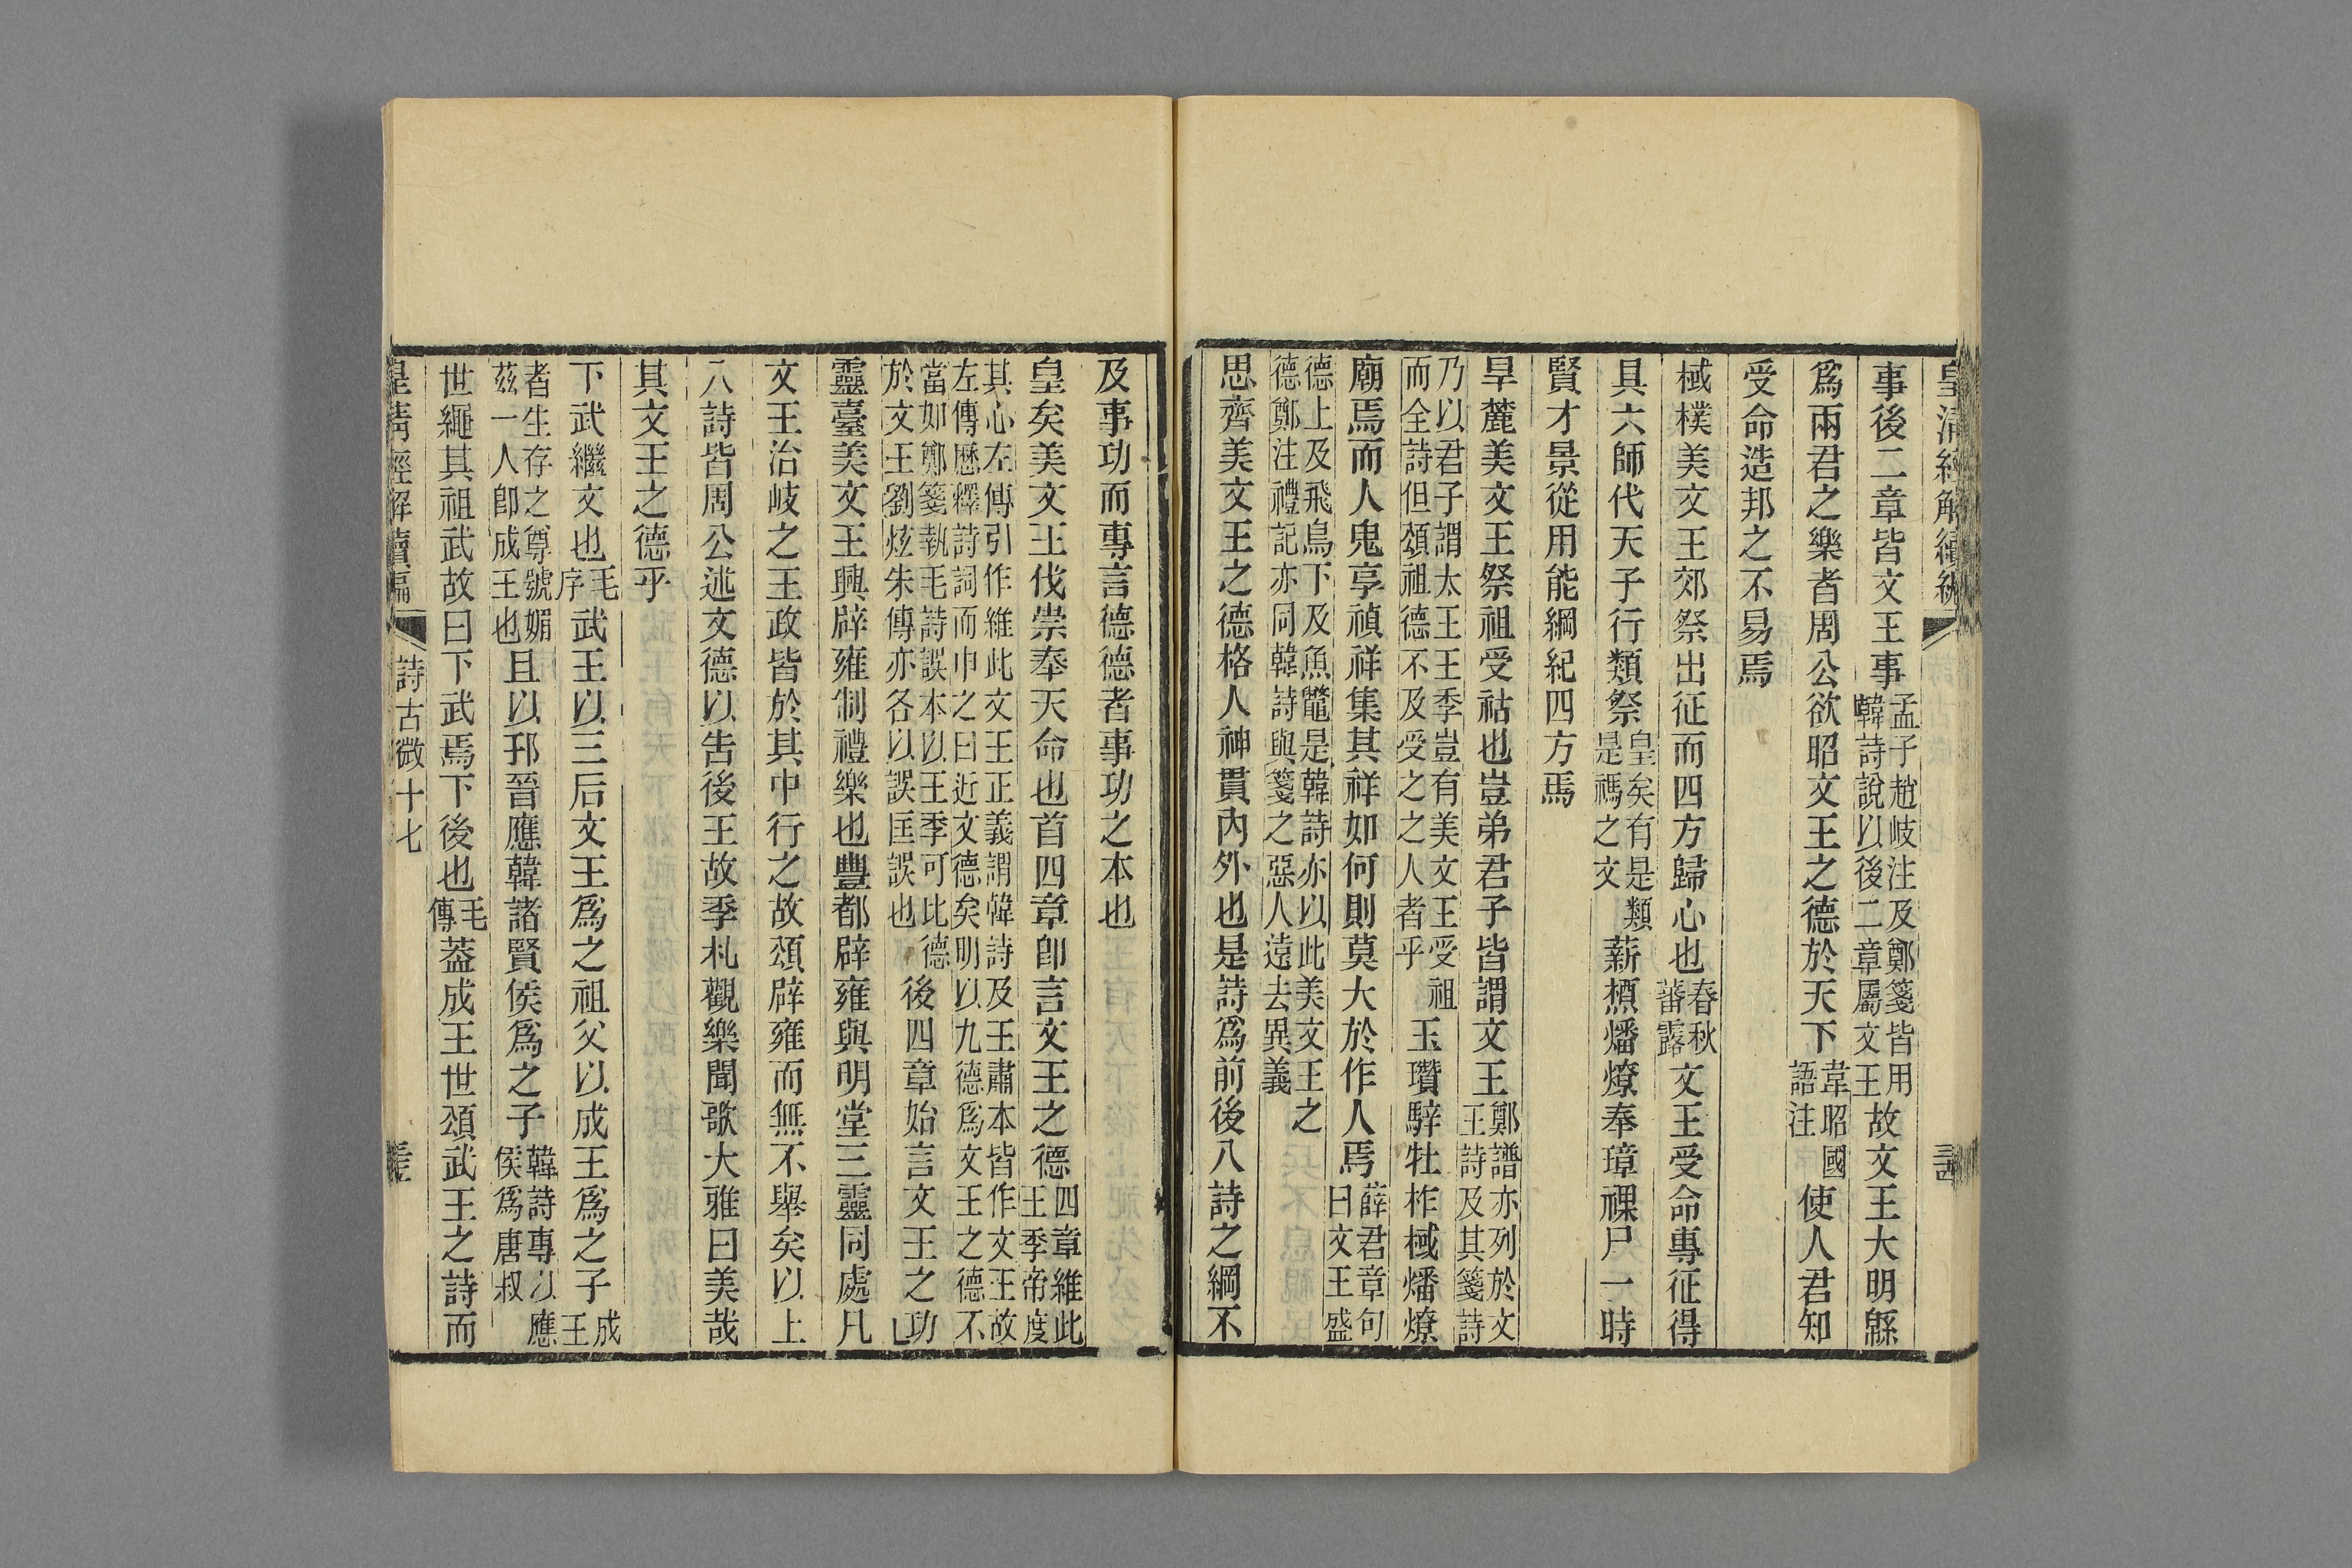 皇清經解續編
事後二章皆文王事孟子趙岐注及鄭箋皆用韓詩說以後二章屬文王故文王大明緜
爲兩君之樂者周公欲昭文王之德於天下韋昭國語注使人君知
受命造邦之不易焉
棫樸美文王郊祭出征而四方歸心也春秋蕃露文王受命專征得
具六師代天子行類祭皇矣有是類是禡之文薪槱燔燎奉璋祼尸一時
賢才景從用能綱紀四方焉
旱麓美文王祭祖受祜也豈弟君子皆謂文王鄭譜亦列於文王詩及其箋詩
乃以君子謂太王王季豈有美文王受祖而全詩但頌祖德不及受之之人者乎玉瓚騂牡柞棫燔燎
廟焉而人鬼享禎祥集其祥如何則莫大於作人焉薛君章句曰文王盛
德上及飛鳥下及魚鼈是韓詩亦以此美文王之德鄭注禮記亦同韓詩與箋之惡人遠去異義
思齊美文王之德格人神貫內外也是詩爲前後八詩之綱不
及事功而專言德德者事功之本也
皇矣美文王伐崇奉天命也首四章卽言文王之德四章維此王季帝度
其心左傳引作維此文王正義謂韓詩及王肅本皆作文王故左傳歷釋詩詞而申之曰近文德矣明以九德爲文王之德不
當如鄭箋執毛詩誤本以王季可比德於文王劉炫朱傳亦各以誤匡誤也後四章始言文王之功
靈臺美文王興辟雍制禮樂也豐都辟雍與明堂三靈同處凡
文王治岐之王政皆於其中行之故頌辟雍而無不舉矣以上
八詩皆周公述文德以告後王故季札觀樂聞歌大雅曰美哉
其文王之德乎
下武繼文也毛序武王以三后文王爲之祖父以成王爲之子成王
者生存之尊號媚茲一人卽成王也且以邘晉應韓諸賢侯爲之子韓詩專以應侯爲唐叔
世繩其祖武故曰下武焉下後也毛傳蓋成王世頌武王之詩而
皇清經解續編 詩古微十七